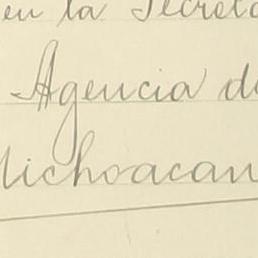 en la Secreta
Agencia de
Michoacan